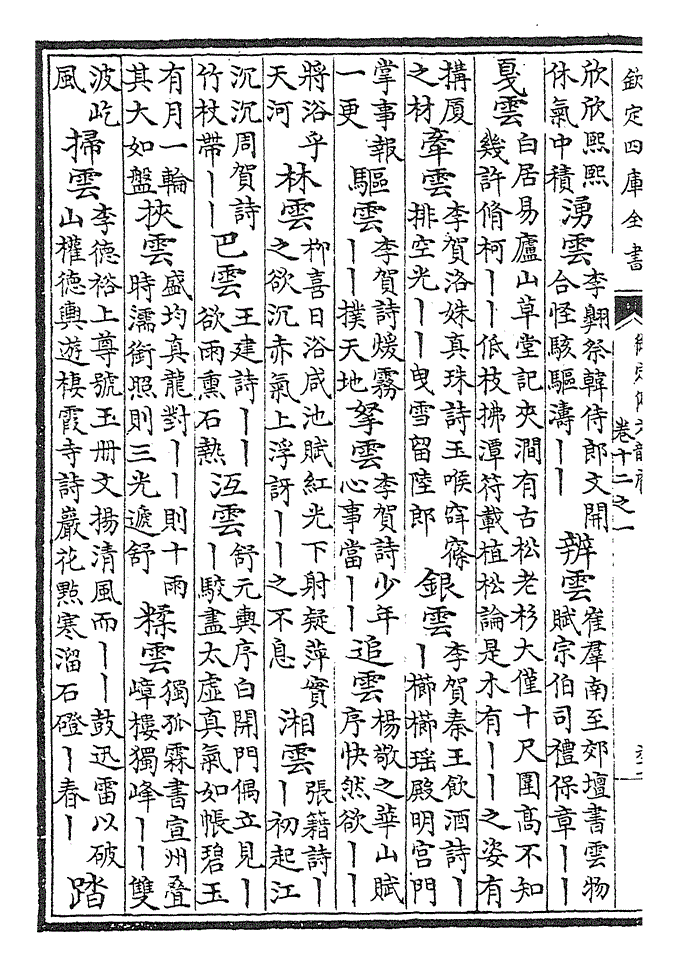 欽定四庫全書
卷十二之一
欣欣熙熙
休氣中積
湧雲
李翺祭韓侍郎文開
合怪駭驅濤丨丨
辨雲
崔羣南至郊壇書雲物
賦宗伯司禮保章丨丨
戛雲
白居易廬山草堂記夾澗有古松老杉大僅十尺圍高不知
幾許脩柯丨丨低枝拂潭符載植松論是木有丨丨之姿有
搆厦
之材
牽雲
李賀洛姝真珠詩玉喉
排空光丨丨曳雪留陸郎
銀雲
李賀秦王飲酒詩丨
丨櫛櫛瑶殿明宮門
掌事報
一更
驅雲
李賀詩煖霧
丨丨撲天地
拏雲
李賀詩少年
心事當丨丨
追雲
楊敬之華山賦
序快然欲丨丨
將浴乎
天河
林雲
柳喜日浴咸池賦紅光下射疑萍實
之欲沉赤氣上浮訝丨丨之不息
湘雲
張籍詩丨
丨初起江
沉沉周賀詩
竹枝帶丨丨
巴雲
王建詩丨丨
欲雨熏石熱
沍雲
舒元輿序白開門偶立見丨
丨駮盡太虛真氣如帳碧玉
有月一輪
其大如盤
挾雲
盛均真龍對丨丨則十雨
時濡銜照則三光遞舒
糅雲
獨孤霖書宣州叠
嶂樓獨峰丨丨雙
波屹
風
掃雲
李德裕上尊號玉册文揚清風而丨丨鼓迅雷以破
山權德輿遊棲霞寺詩巖花點寒溜石磴丨春丨
踏